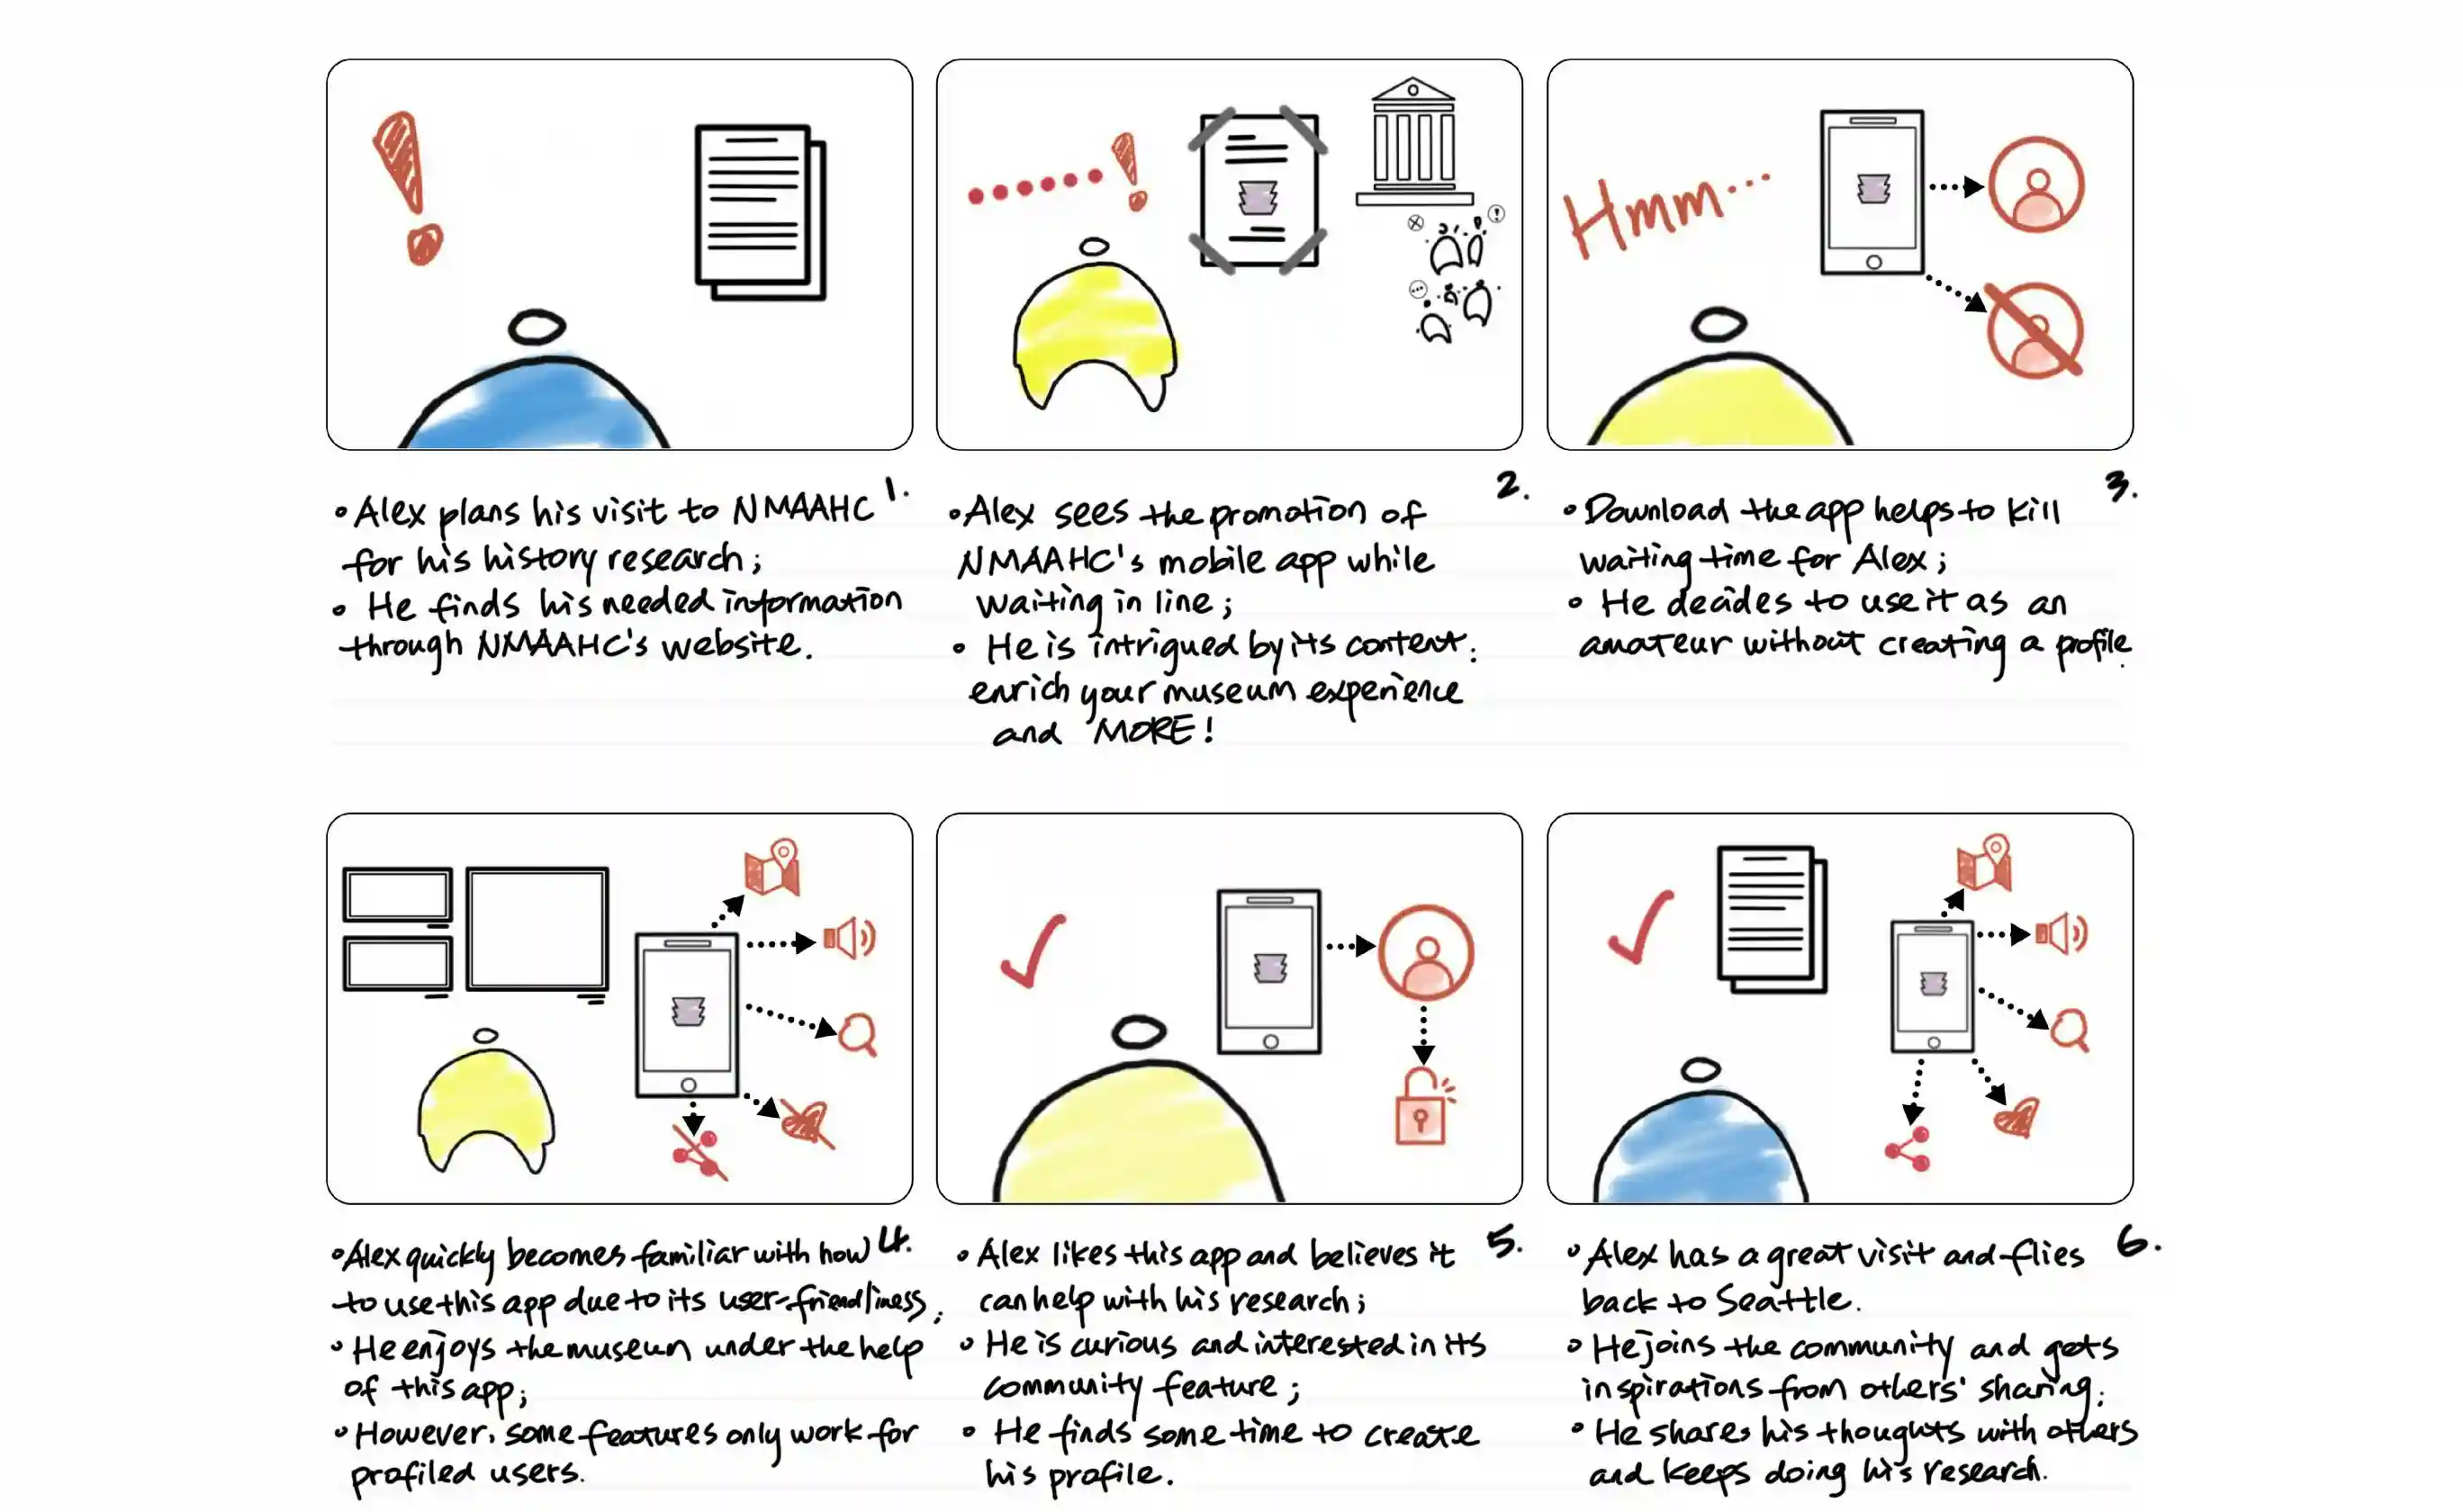 Hmm...
• Alex plans his visit to NMAAHC 1.
for his history research;
• He finds his needed information
through NMAAHC's website.
2.
• Alex sees the promotion of
NMAAHC's mobile app while
waiting in line;
• He is intrigued by its content:
enrich your museum experience
and MORE!
3.
• Download the app helps to kill
waiting time for Alex;
• He decides to use it as an
amateur without creating a profile.
• Alex quickly becomes familiar with how 4.
to use this app due to its user-friendliness;
• He enjoys the museum under the help
of this app;
• However, some features only work for
profiled users.
• Alex likes this app and believes it 5.
can help with his research;
• He is curious and interested in its
community feature;
• He finds some time to create
his profile.
• Alex has a great visit and flies 6.
back to Seattle.
• He joins the community and gets
inspirations from others' sharing;
• He shares his thoughts with others
and keeps doing his research.